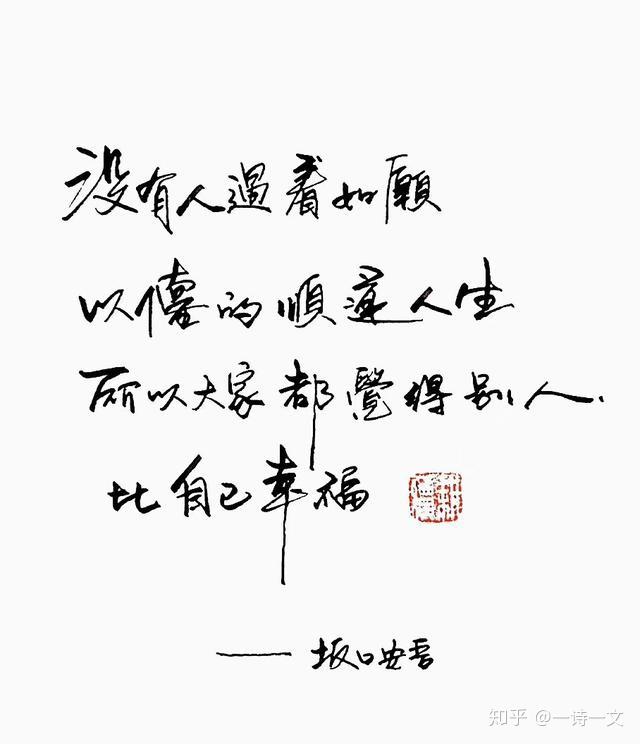 没有人過着如願
以償的順遂人生
所以大家都覺得别人
比自己幸福
—— 坂口安吾
知乎 @一诗一文